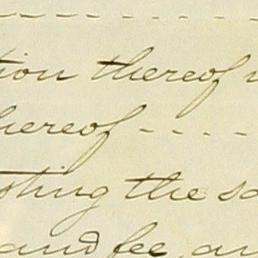 tion thereof
hereof - - - -
sting the sa
and fee, an